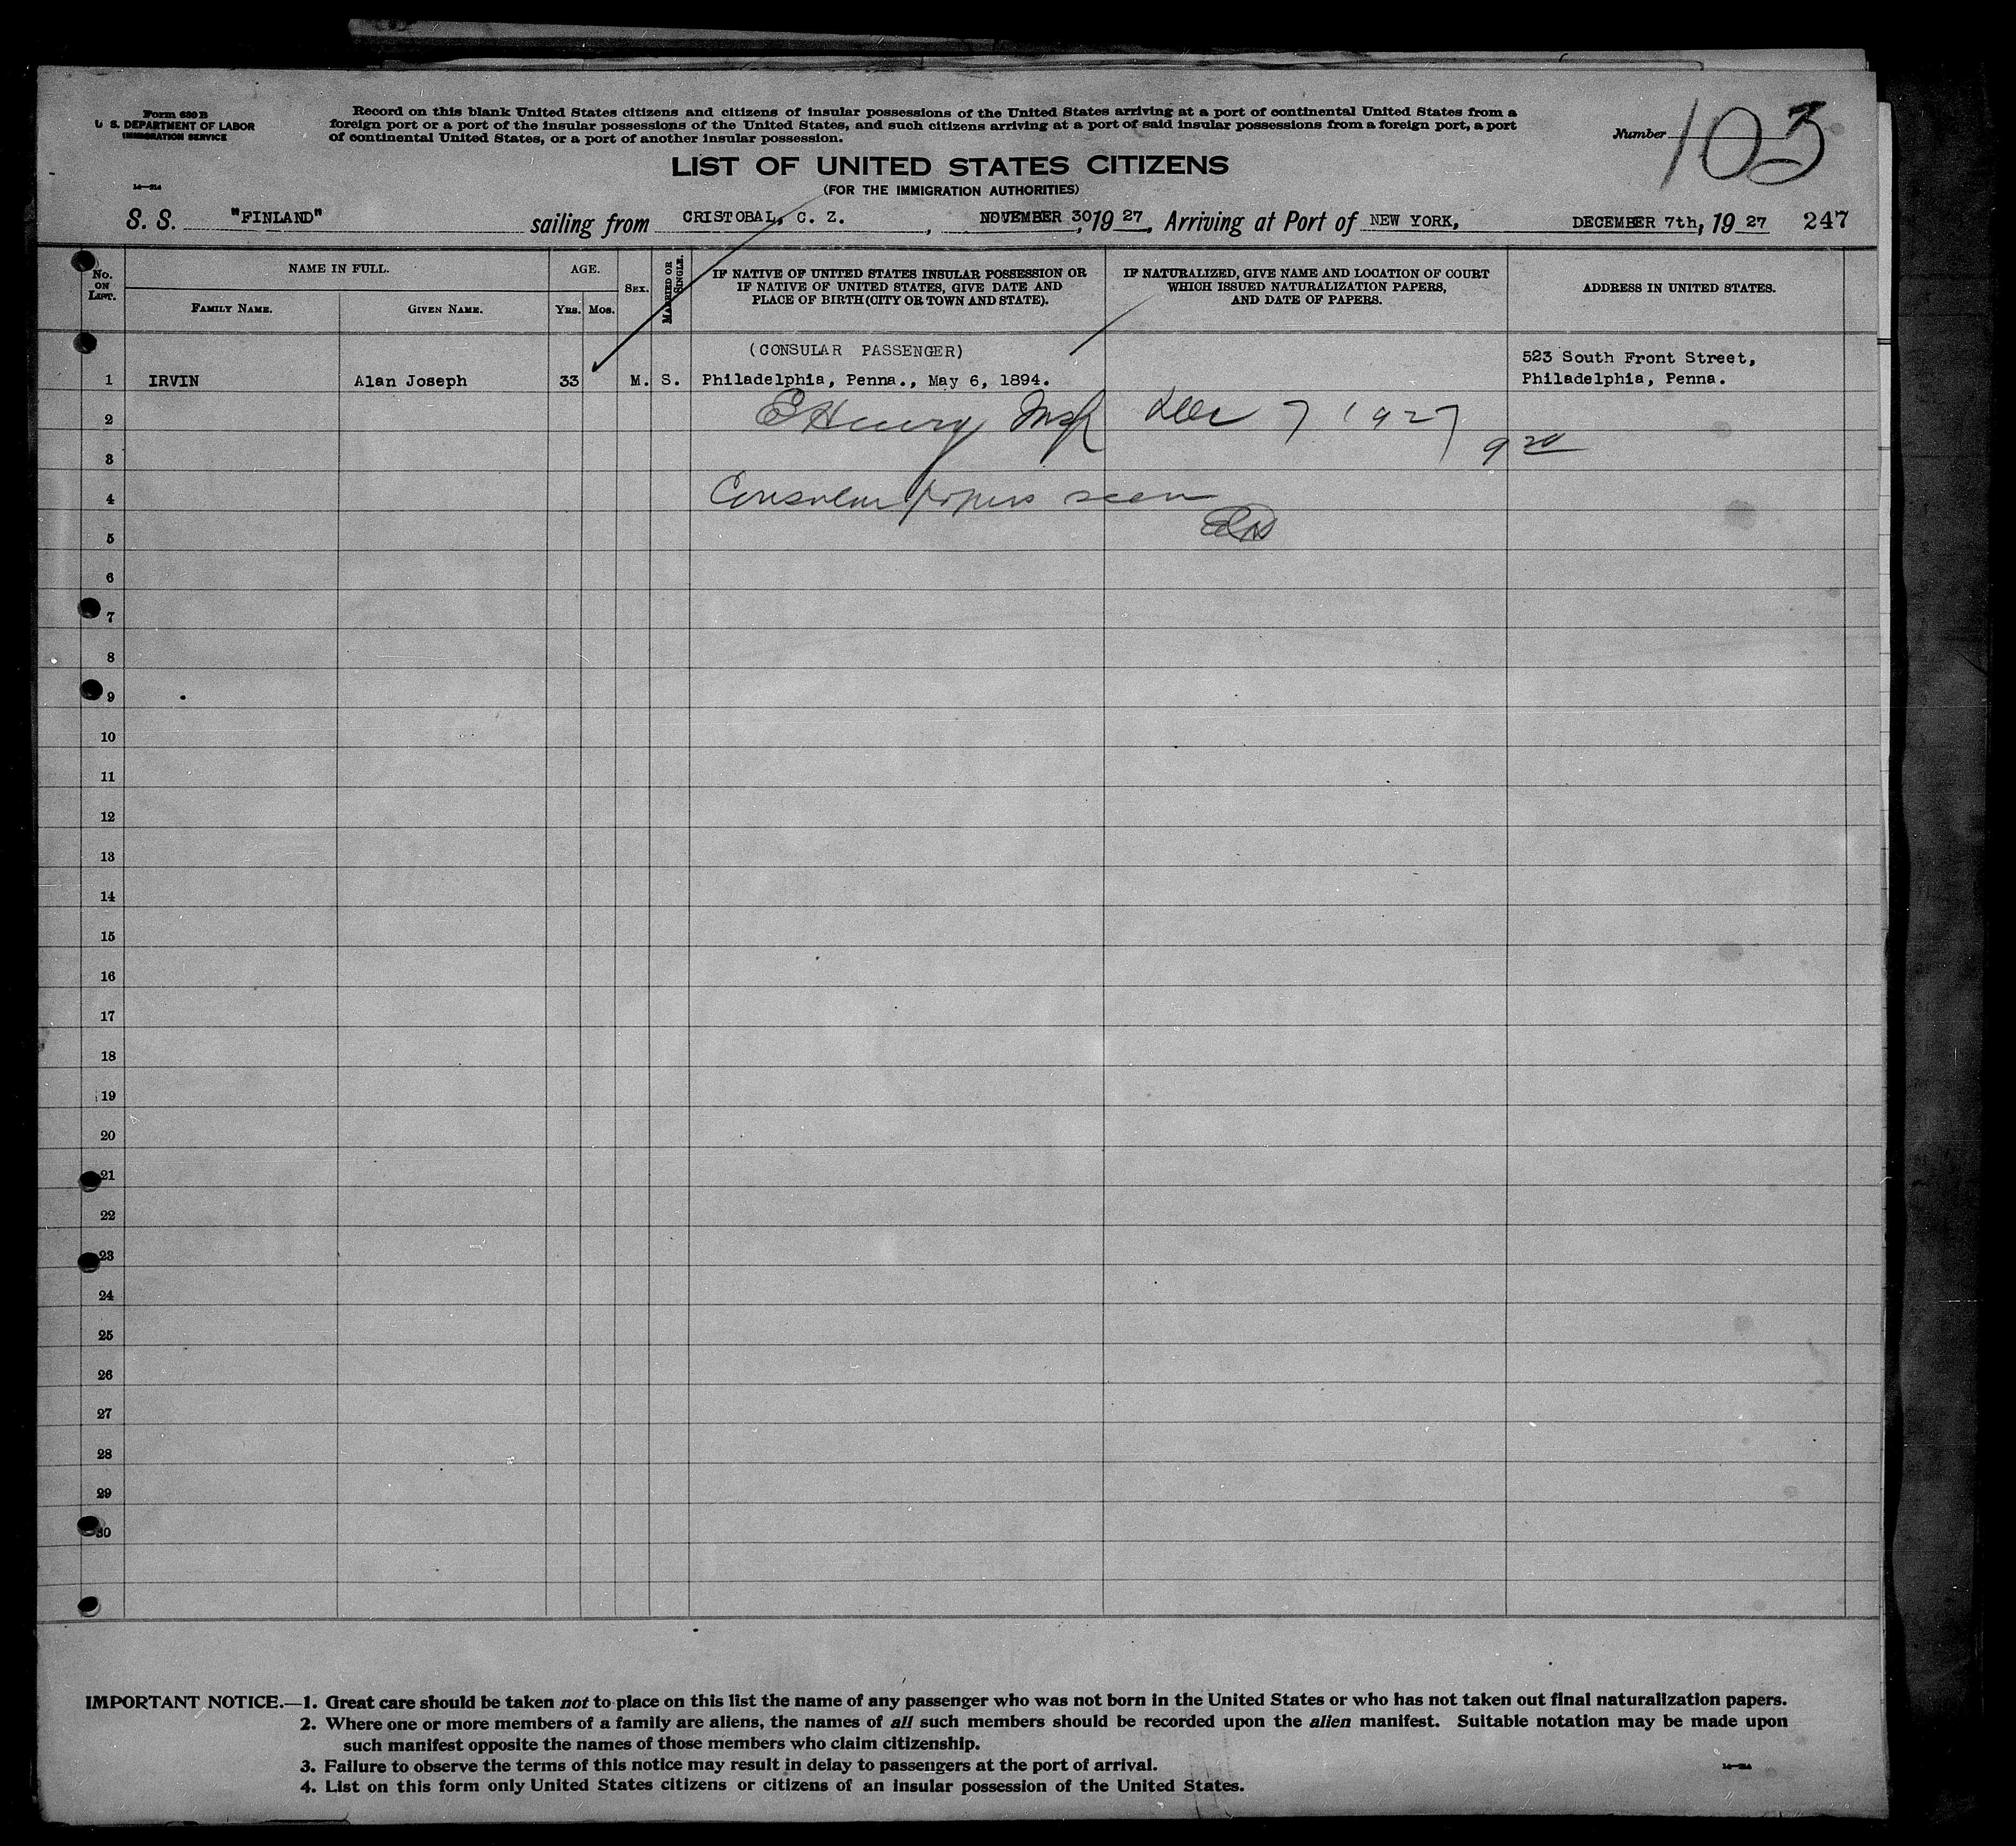 Form 630 B
U. S. DEPARTMENT OF LABOR
IMMIGRATION SERVICE
Record on this blank United States citizens and citizens of insular possessions of the United States arriving at a port of continental United States from a
foreign port or a port of the insular possessions of the United States, and such citizens arriving at a port of said insular possessions from a foreign port, a port
of continental United States, or a port of another insular possession.
Number 103
LIST OF UNITED STATES CITIZENS
(FOR THE IMMIGRATION AUTHORITIES)
S. S. "FINLAND" sailing from CRISTOBAL, C. Z. , NOVEMBER 30, 1927, Arriving at Port of NEW YORK, DECEMBER 7th, 1927 247
No. ON LIST.
NAME IN FULL.
FAMILY NAME.
GIVEN NAME.
AGE.
YRS. MOS.
SEX.
MARRIED OR SINGLE.
IF NATIVE OF UNITED STATES INSULAR POSSESSION OR
IF NATIVE OF UNITED STATES, GIVE DATE AND
PLACE OF BIRTH (CITY OR TOWN AND STATE).
IF NATURALIZED, GIVE NAME AND LOCATION OF COURT
WHICH ISSUED NATURALIZATION PAPERS,
AND DATE OF PAPERS.
ADDRESS IN UNITED STATES.
(CONSULAR PASSENGER)
523 South Front Street,
1 IRVIN Alan Joseph 33 M. S. Philadelphia, Penna., May 6, 1894. Philadelphia, Penna.
2 E Henry Insp Dec 7 1927
3 9 20
4 Consular papers seen
5
6
7
8
9
10
11
12
13
14
15
16
17
18
19
20
21
22
23
24
25
26
27
28
29
30
IMPORTANT NOTICE.—1. Great care should be taken not to place on this list the name of any passenger who was not born in the United States or who has not taken out final naturalization papers.
2. Where one or more members of a family are aliens, the names of all such members should be recorded upon the alien manifest. Suitable notation may be made upon
such manifest opposite the names of those members who claim citizenship.
3. Failure to observe the terms of this notice may result in delay to passengers at the port of arrival.
4. List on this form only United States citizens or citizens of an insular possession of the United States.